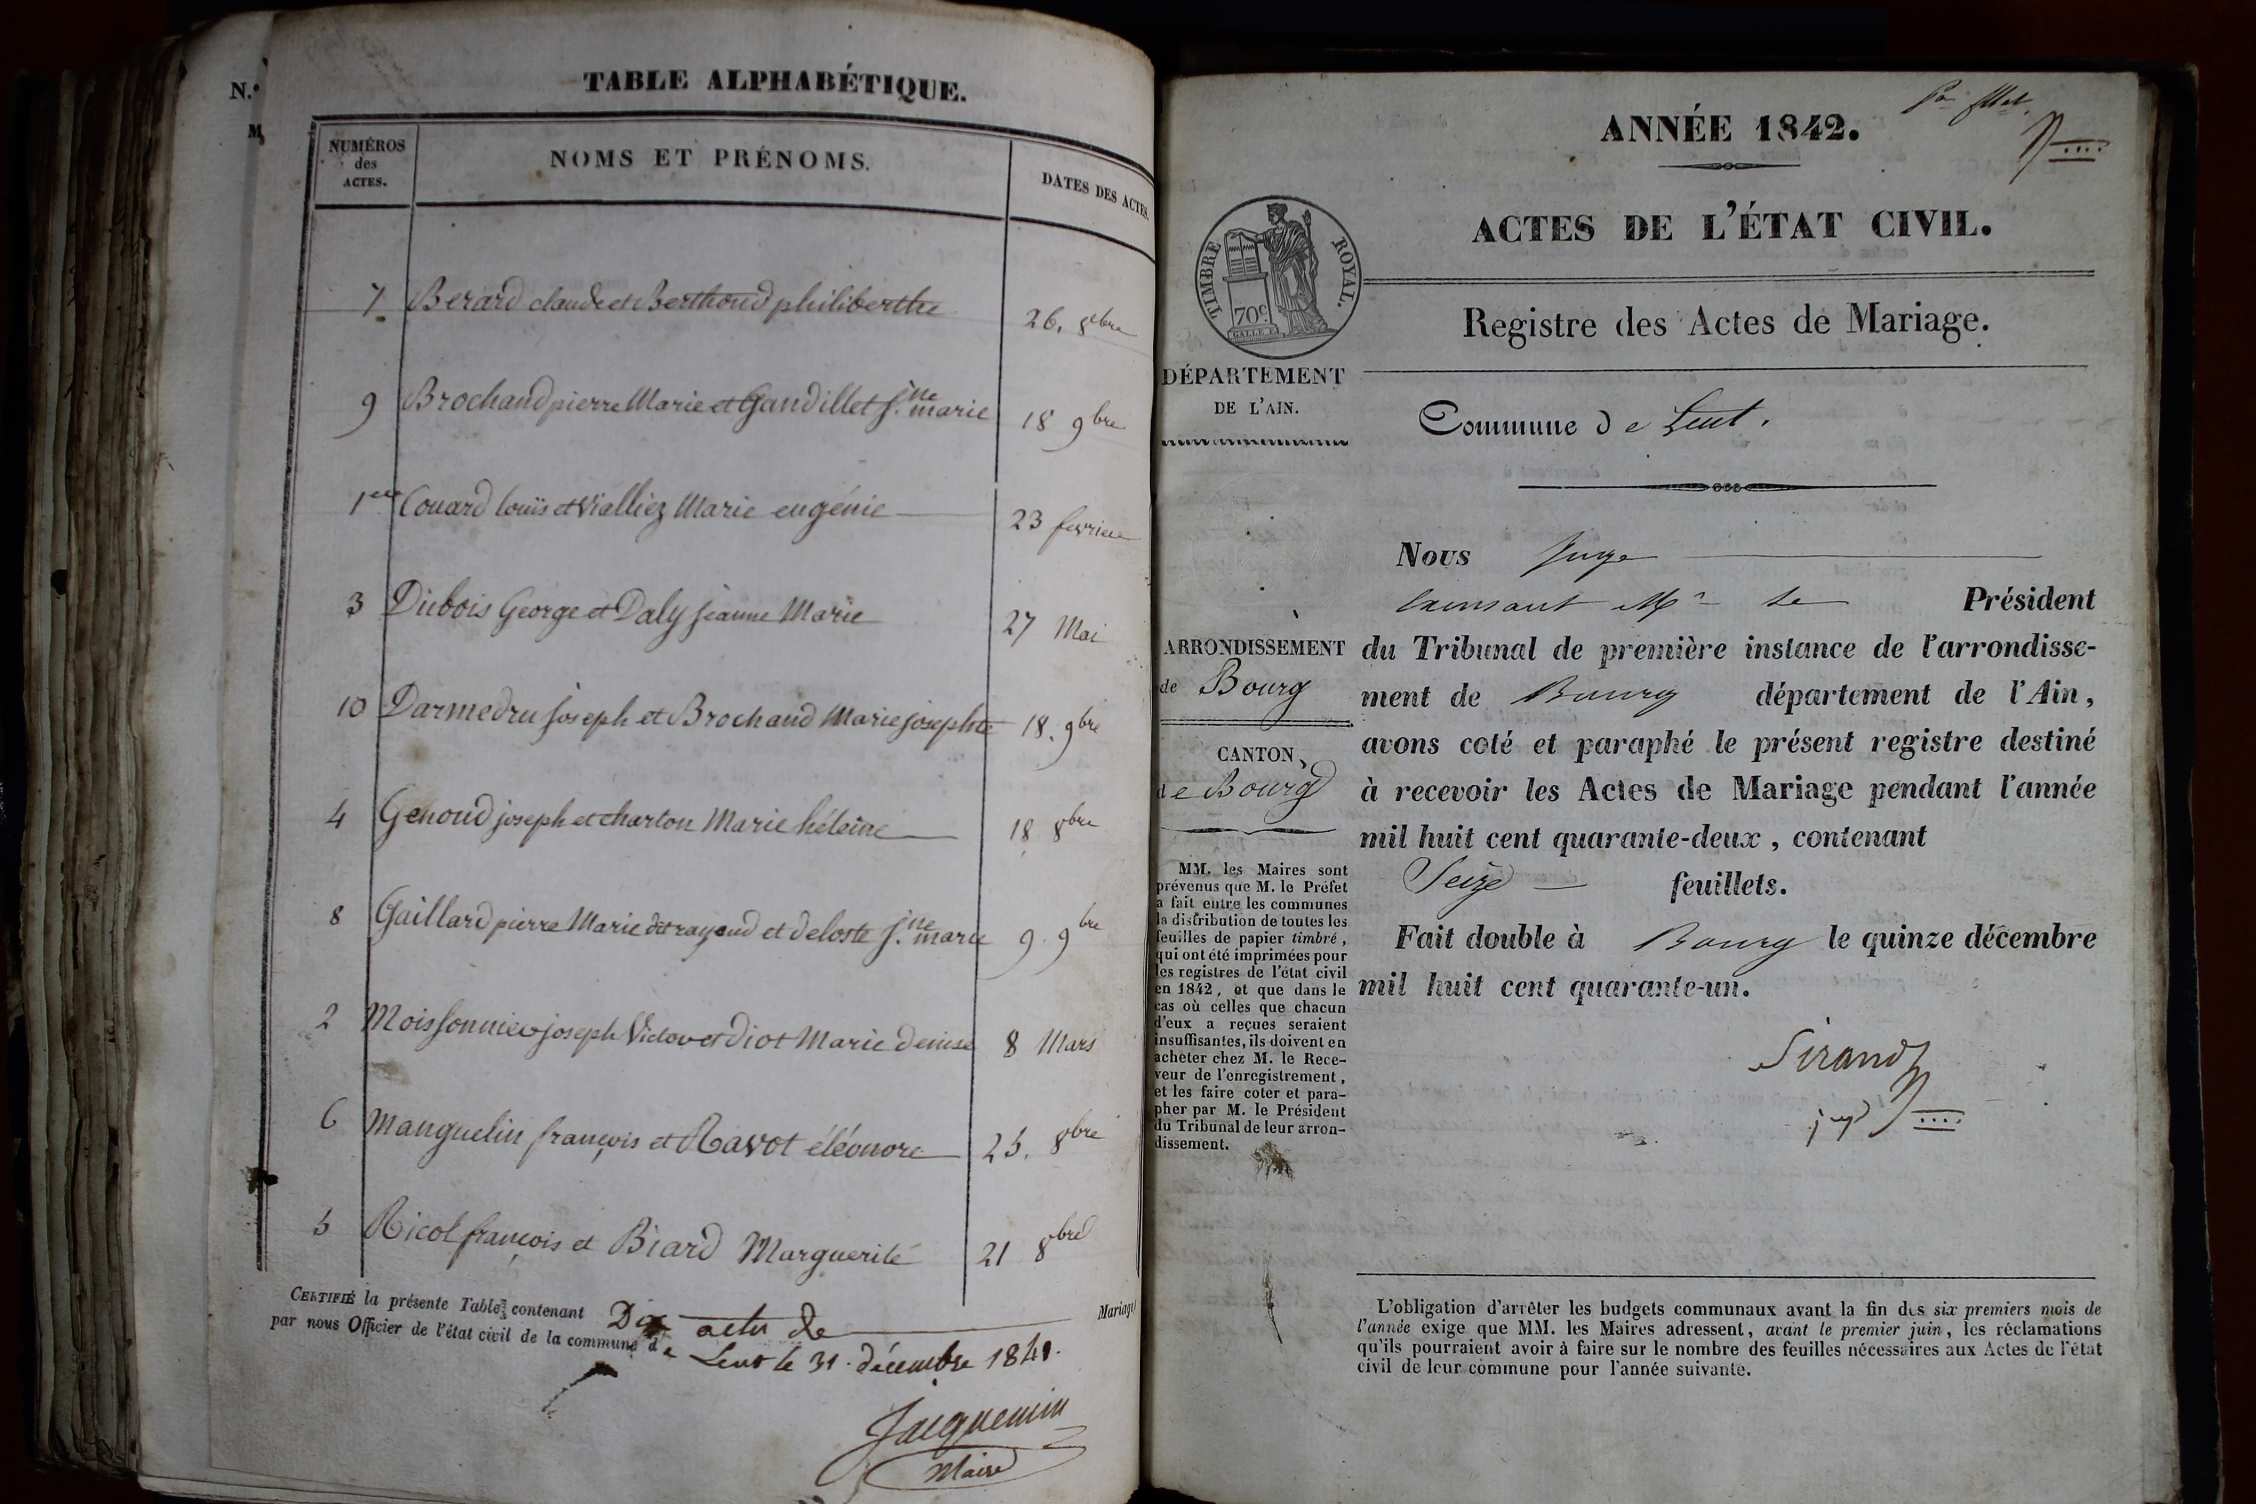 N.°
M
TABLE ALPHABÉTIQUE.
NUMÉROS
des
ACTES.
NOMS ET PRÉNOMS.
DATES DES ACTES.
7 Berard claude et Berthoud philiberthe 26. 8bre
9 Brochand pierre Marie et Gandillet j.ne marie 18 9bre
1er Couard louis et Vialliez Marie eugénie 23 fevrier
3 Dubois George et Daly jeanne Marie 27 Mai
10 Darmedru joseph et Brochand Marie josephte 18. 9bre
4 Genoud joseph et charton Marie héleine 18 8bre
8 Gaillard pierre Marie et deloste j.ne marie 9. 9bre
2 Moissonnier joseph Victor et diot Marie denise 8 Mars
6 Manguelin françois et Ravot éléonore 25. 8bre
5 Ricol françois et Biard Marguerite 21 8bre
CERTIFIÉ la présente Table contenant Dix actes de Mariage
par nous Officier de l'état civil de la commune de Lent le 31. décembre 1841.
Jacquemin
Maire
ANNÉE 1842.
ACTES DE L'ÉTAT CIVIL.
TIMBRE ROYAL.
70c.
Registre des Actes de Mariage.
DÉPARTEMENT
DE L'AIN.
Commune de Lent.
ARRONDISSEMENT
de Bourg
CANTON
de Bourg
MM. les Maires sont
prévenus que M. le Préfet
a fait entre les communes
la distribution de toutes les
feuilles de papier timbré,
qui ont été imprimées pour
les registres de l'état civil
en 1842, et que dans le
cas où celles que chacun
d'eux a reçues seraient
insuffisantes, ils doivent en
acheter chez M. le Rece-
veur de l'enregistrement,
et les faire coter et para-
pher par M. le Président
du Tribunal de leur arron-
dissement.
Nous Juge
M.r le Président
du Tribunal de première instance de l'arrondisse-
ment de Bourg département de l'Ain,
avons coté et paraphé le présent registre destiné
à recevoir les Actes de Mariage pendant l'année
mil huit cent quarante-deux, contenant
Seize feuillets.
Fait double à Bourg le quinze décembre
mil huit cent quarante-un.
Sirand
L'obligation d'arrêter les budgets communaux avant la fin des six premiers mois de
l'année exige que MM. les Maires adressent, avant le premier juin, les réclamations
qu'ils pourraient avoir à faire sur le nombre des feuilles nécessaires aux Actes de l'état
civil de leur commune pour l'année suivante.